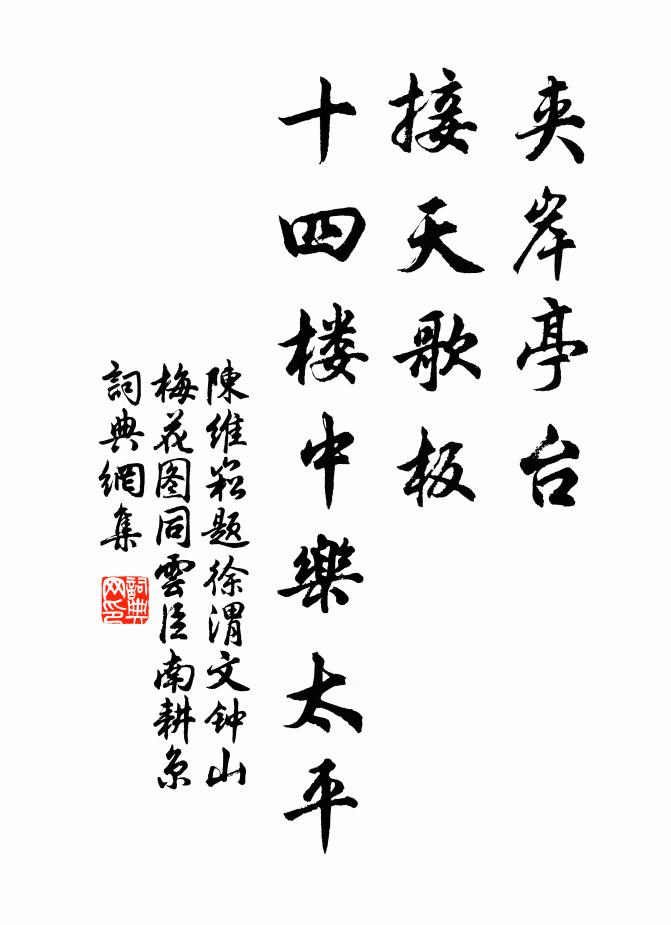 夹岸亭台
接天歌板
十四楼中樂太平
陳維崧题徐渭文钟山
梅花图同雲臣南耕京
詞典網集
詞典網印